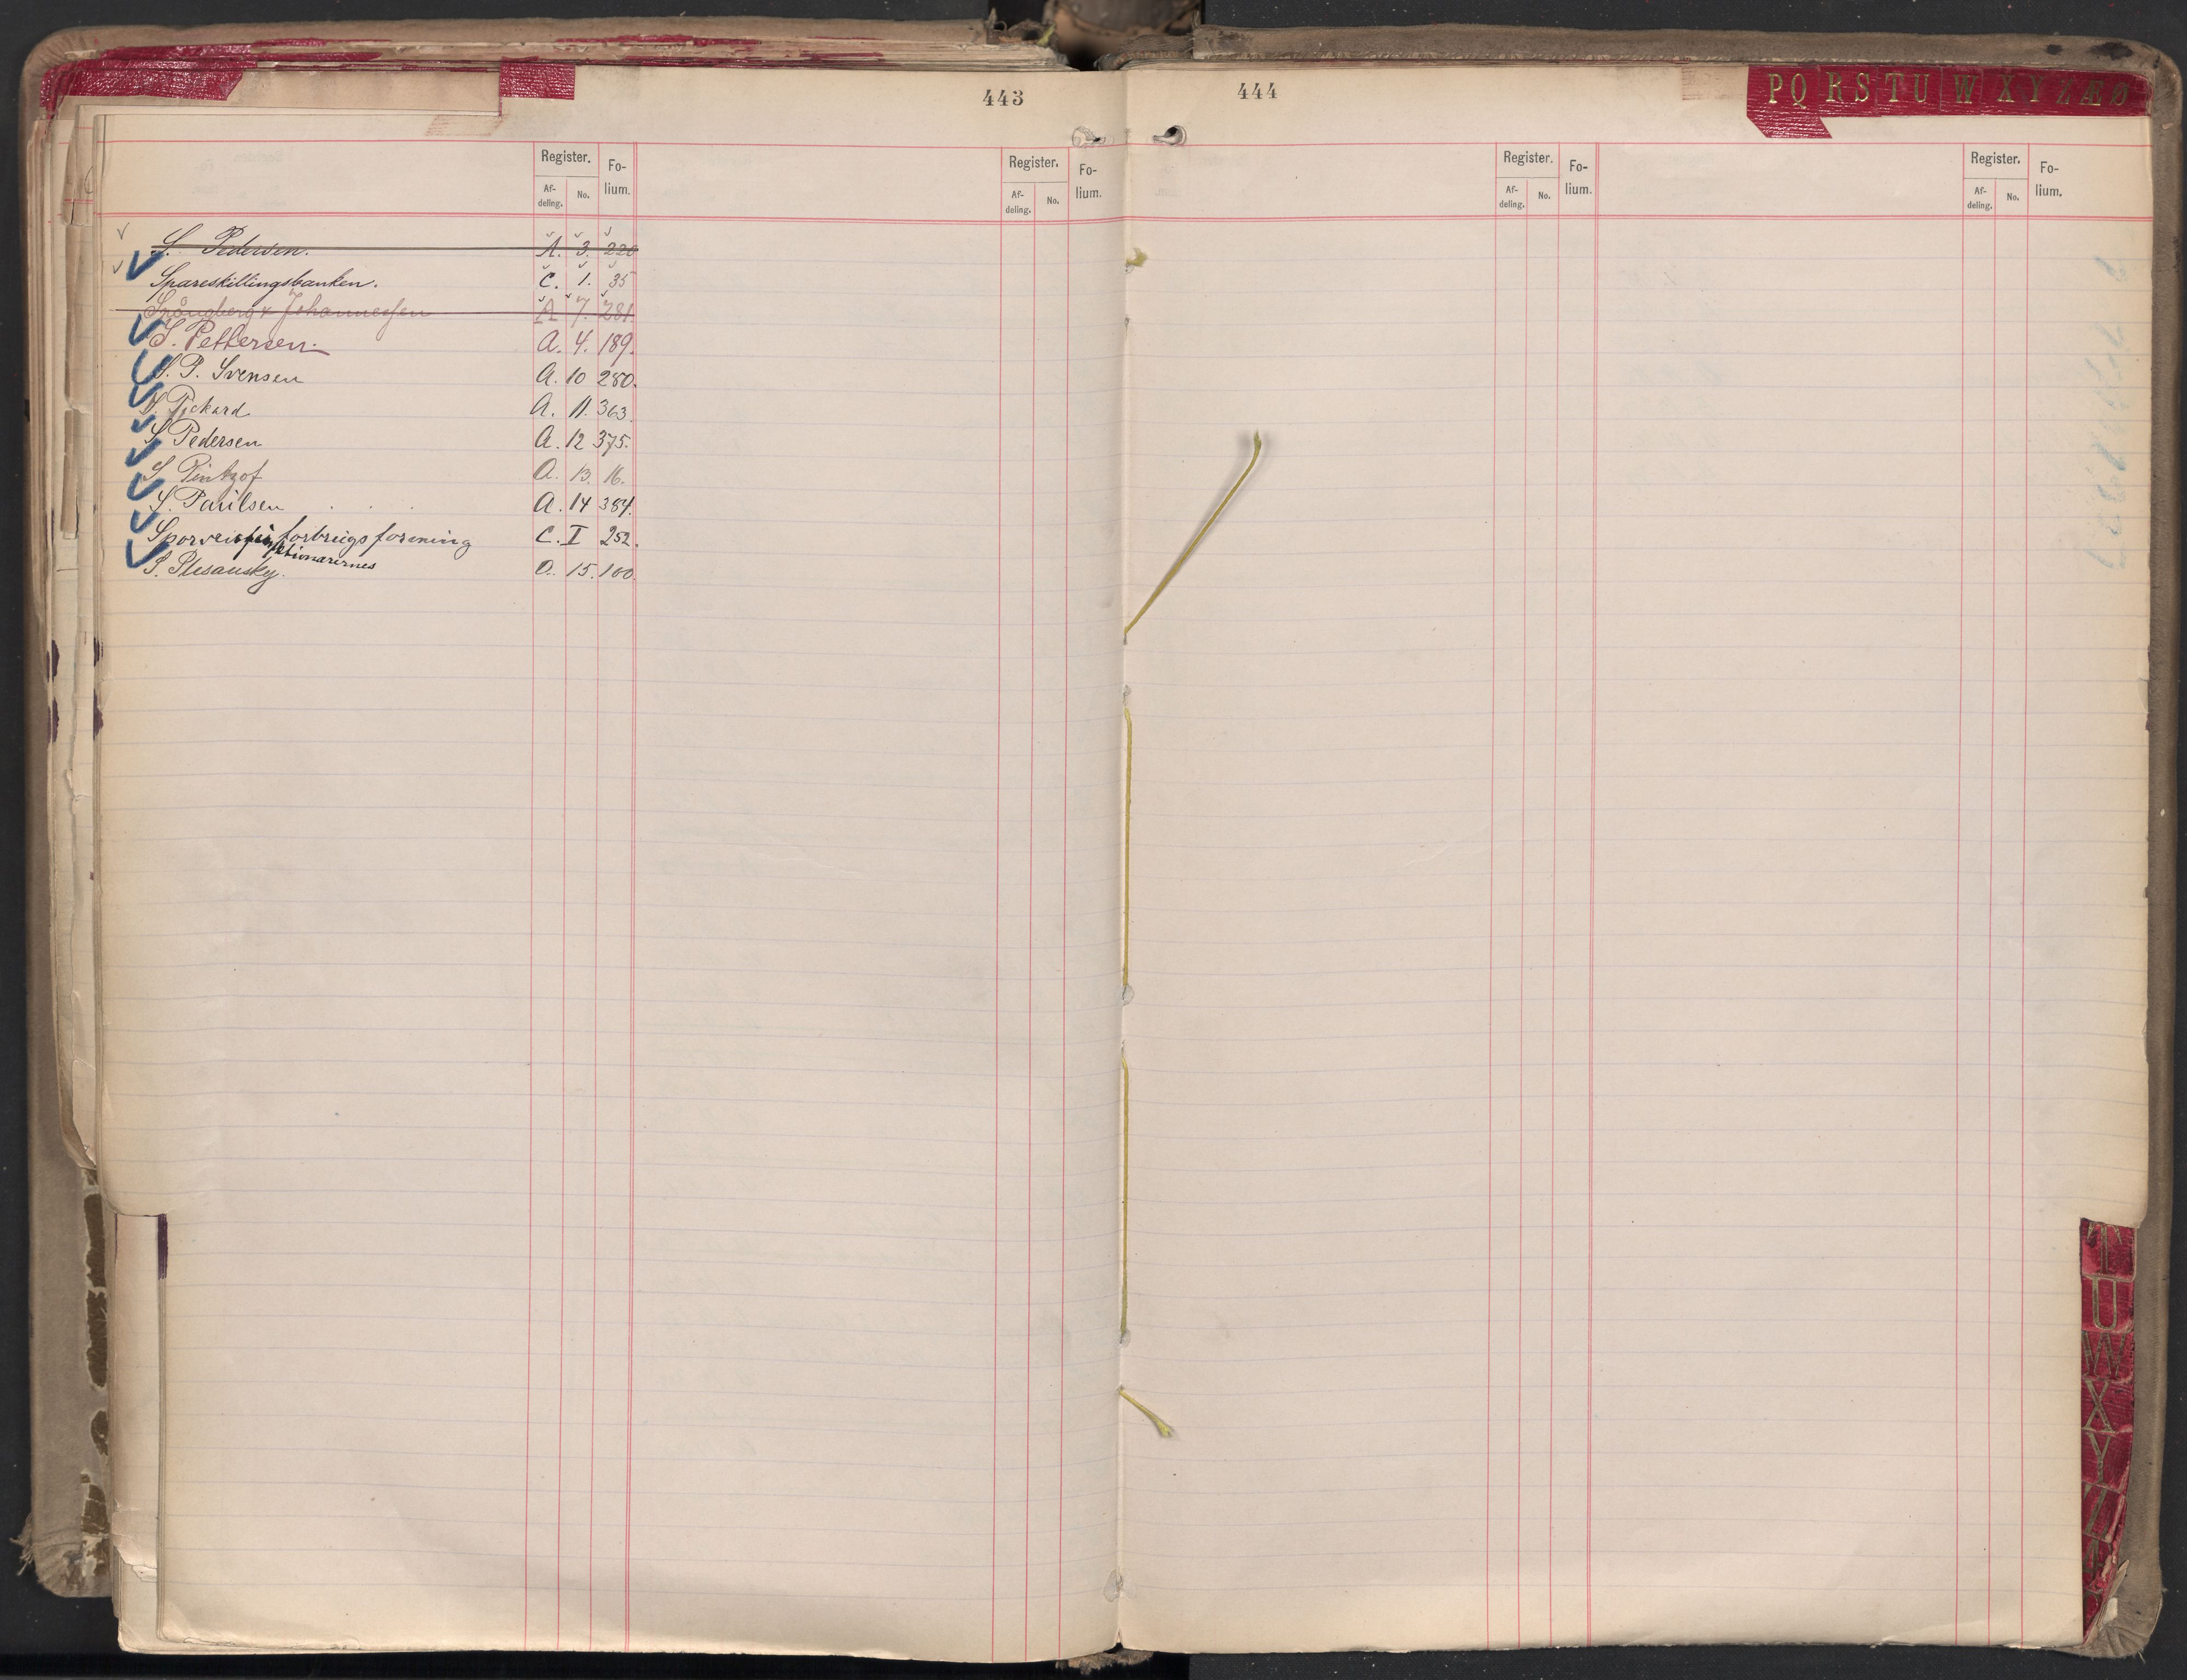 443
Register. Fo-
Af- No. lium.
deling.
Register. Fo-
Af- No. lium.
deling.
S. Pedersen. A. 3. 220
Spareskillingsbanken. C. 1. 35
Spångberg & Johannessen A 7. 281.
S. Pettersen. A. 4. 189.
S. P. Svensen A. 10 280.
S. Pickard A. 11. 363.
S Pedersen A. 12 375.
S Pintzof A. 13. 16.
S. Paulsen A. 14 384.
Sporveisfunktionærernes forbrugsforening C. I 252.
S. Plesansky. A. 15. 100.
444
PQ RS TU W X Y Z Æ Ø
Register. Fo-
Af- No. lium.
deling.
Register. Fo-
Af- No. lium.
deling.
T
U
W
X
Y
Z